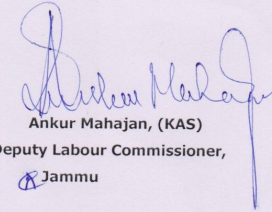 Ankur Mahajan
Ankur Mahajan, (KAS)
Deputy Labour Commissioner,
Jammu